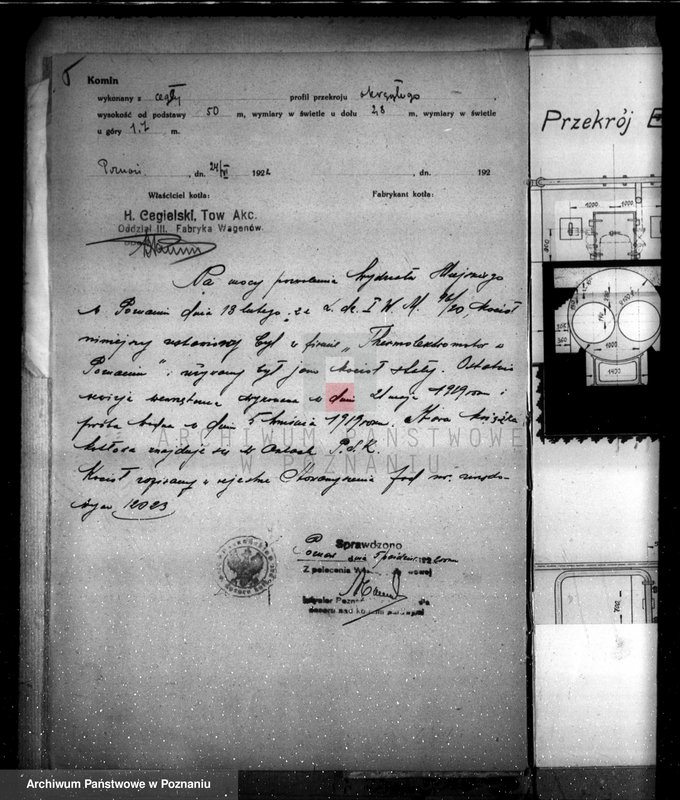 Komin
wykonany z cegły profil przekroju okrągłego
wysokość od podstawy 50 m, wymiary w świetle u dołu 2,8 m, wymiary w świetle
u góry 1.7 m.
Poznań, dn. 24/VI 1922 , dn. 192
Właściciel kotła: Fabrykant kotła:
H. Cegielski, Tow Akc.
Oddział III. Fabryka Wagonów
Na mocy pozwolenia Wydziału Krajowego
w Poznaniu dnia 18 lutego L. dz. I W. M. /20, kocioł
niniejszy ustawiony był w firmie „Thermoelektromotor w
Poznaniu" i używany był jako kocioł stały. Ostatnia
rewizja wewnętrzna wykonana w dniu 21 maja 1919 roku i
próba wodna w dniu 5 kwietnia 1919 roku. Stara książka
kotłowa znajduje się w aktach P.S.K.
Kocioł zapisany w rejestrze Stowarzyszenia pod nr.
12023
Sprawdzono
Poznań dnia 5 paździer. 192
Z polecenia
Inżynier Pozn
dozoru nad kotłami parowymi
ARCHIWUM PAŃSTWOWE
W POZNANIU
Przekrój
1000 1000
1000
1400
360
702
Archiwum Państwowe w Poznaniu